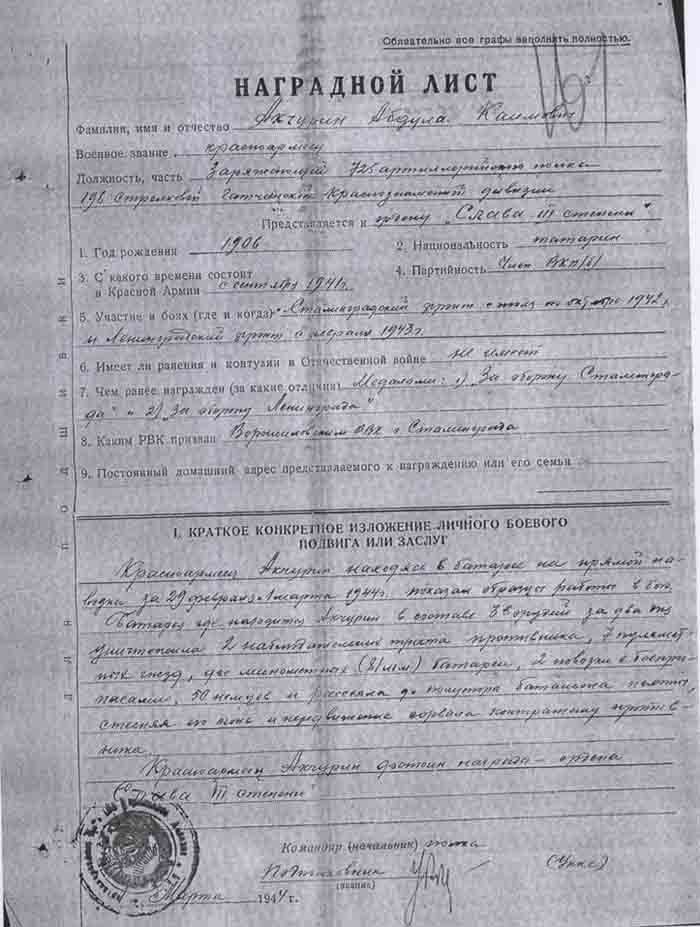 Обязательно все графы заполнять полностью.
НАГРАДНОЙ ЛИСТ
Фамилия, имя и отчество Ахчурин Абдула Каимович
Военное звание красноармеец
Должность, часть Заряжающий 725 артиллерийского полка
196 Стрелковой Гатчинской Краснознаменной дивизии
Представляется к ордену "Слава III степени"
1. Год рождения 1906 2. Национальность татарин
3. С какого времени состоит
в Красной Армии с сентября 1941 г. 4. Партийность Член ВКП/б/
5. Участие в боях (где и когда) Сталинградский фронт с июля по октябрь 1942 г.
и Ленинградский фронт с февраля 1943 г.
6. Имеет ли ранения и контузии в Отечественной войне не имеет
7. Чем ранее награжден (за какие отличия) Медалями: 1) "За оборону Сталингра-
да" и 2) "За оборону Ленинграда"
8. Каким РВК призван Ворошиловским РВК г. Сталинграда
9. Постоянный домашний адрес представляемого к награждению или его семьи
I. КРАТКОЕ КОНКРЕТНОЕ ИЗЛОЖЕНИЕ ЛИЧНОГО БОЕВОГО
ПОДВИГА ИЛИ ЗАСЛУГ
Красноармеец Ахчурин находясь в батарее на прямой на-
водке за 29 февраля 1 марта 1944 г. показал образцы работы в бою.
Батарея где находится Ахчурин в составе 3х орудий за два дня
уничтожила 2 наблюдательных пункта противника, 7 пулемет-
ных гнезд, две минометных (81 мм) батареи, 2 повозки с боепри-
пасами, 50 немцев и рассеяла до батальона пехоты
огонь и передвижение сорвала контратаку против-
ника.
Красноармеец Ахчурин достоин награды — ордена
"Слава III степени"
Командир (начальник) полка
Подполковник
(звание)
Марта 1944 г.
ДЛЯ ПОДШИВКИ